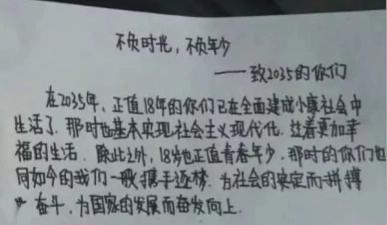 不负时光，不负年少
——致2035的你们
在2035年，正值18年的你们已在全面建成小康社会中
生活了。那时也基本实现社会主义现代化。过着更加幸
福的生活。除此之外，18岁也正值青春年少，那时的你们也
同如今的我们一般携手逐梦。为社会的安定而拼搏
奋斗，为国家的发展而奋发向上。